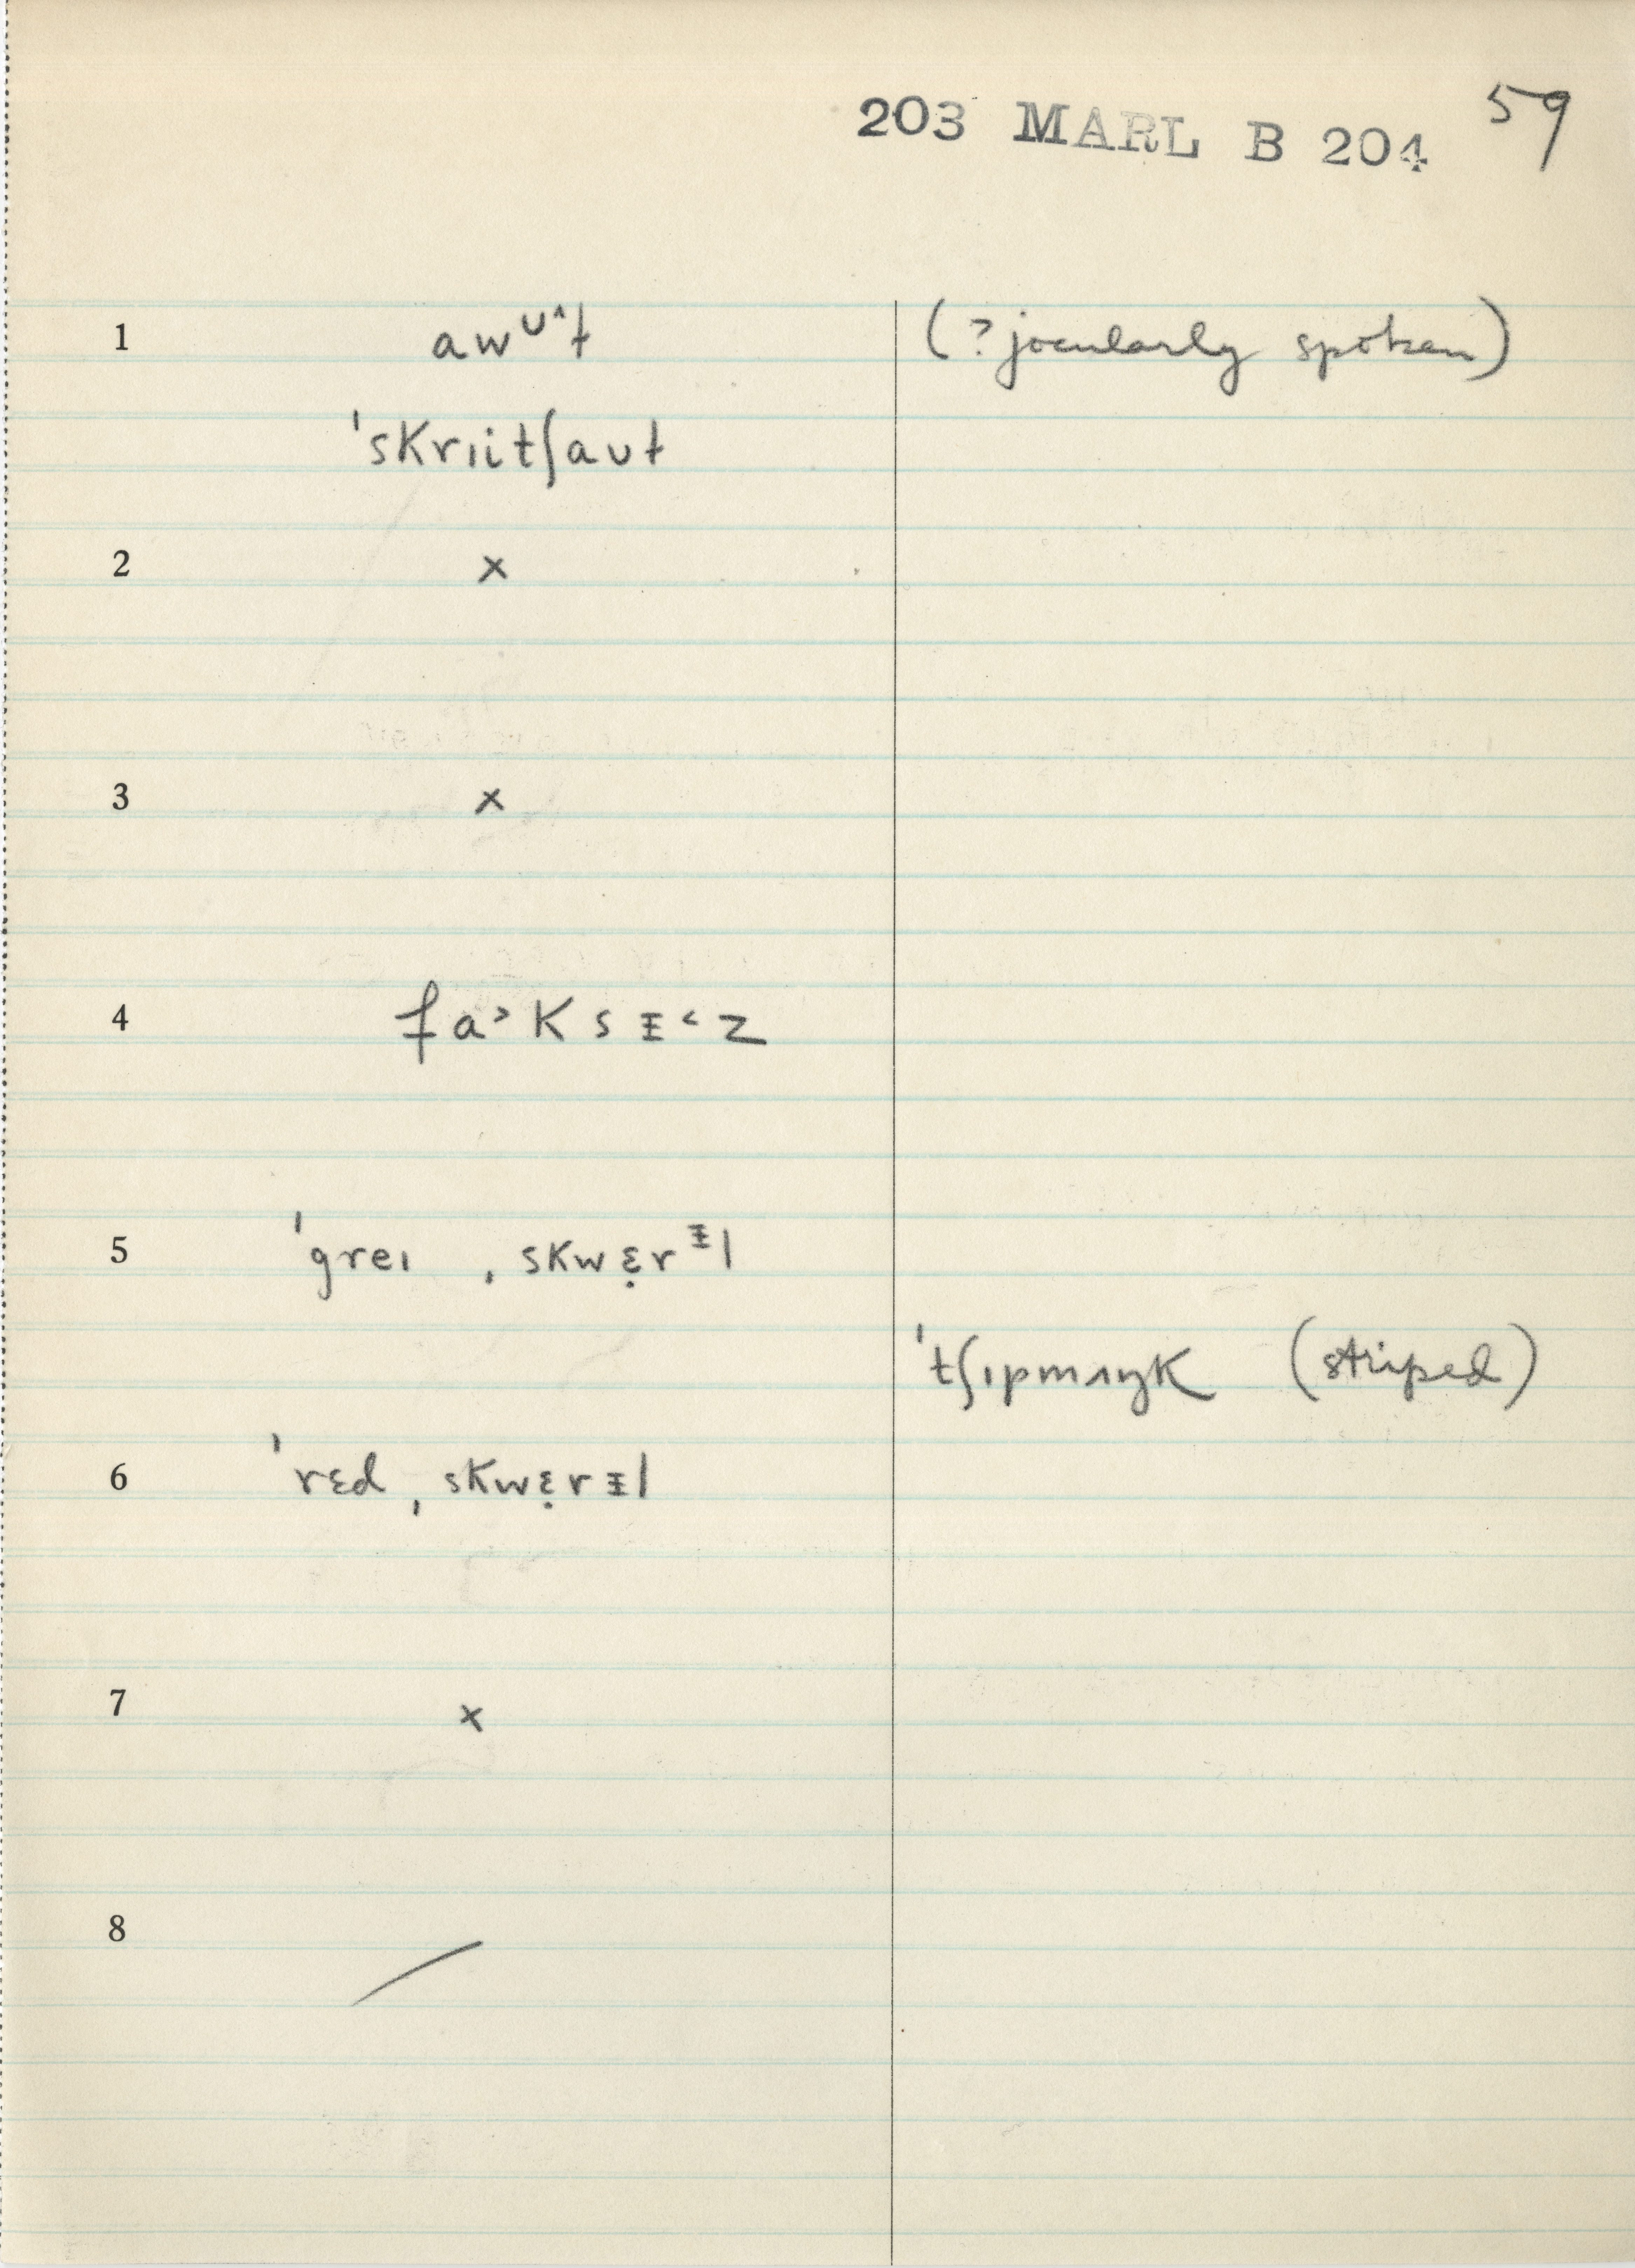 203 MARL B 204 59
1 awᶷ˄ɫ (?jocularly spoken)
ˈskrɪitʃaʊɫ
2 ×
3 ×
4 fa˃ksᵻ˂z
5 ˈgreɪ ˌskwɛ̣rᵻl
ˈtʃɪpmʌŋk (striped)
6 ˈrɛd ˌskwɛ̣rᵻl
7 ×
8 /